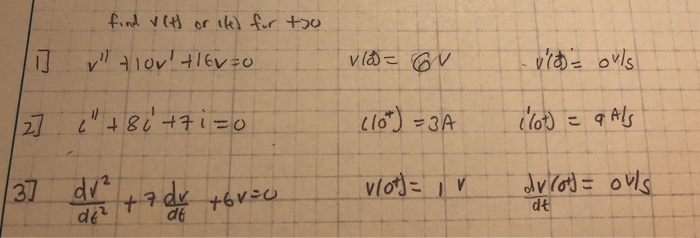 find v(t) or i(t) for t>0
1] v'' + 10v' + 16v = 0 v(0⁺) = 6V v'(0⁺) = 0 v/s
2] i'' + 8i' + 7i = 0 i(0⁺) = 3A i'(0⁺) = 9 A/s
3] dv²/dt² + 7 dv/dt + 6v = 0 v(0⁺) = 1 V dv/dt(0⁺) = 0 v/s